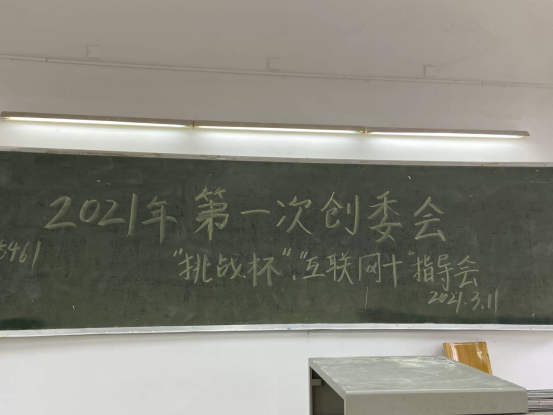 2021年第一次创委会
5461
"挑战杯"、"互联网+"指导会
2021.3.11